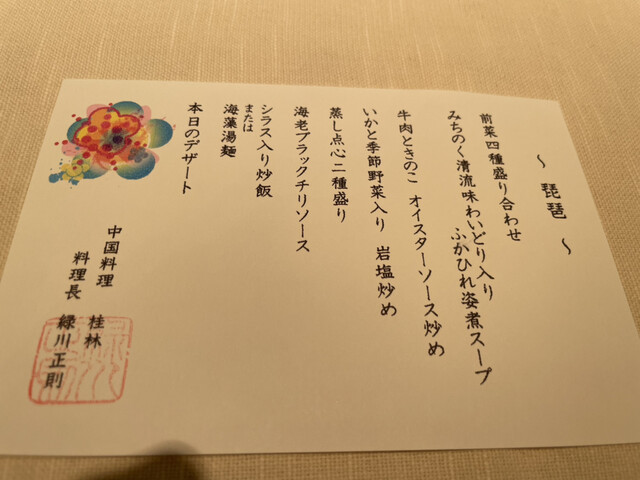 ～ 琵琶 ～
前菜四種盛り合わせ
みちのく清流味わいどり入り
ふかひれ姿煮スープ
牛肉ときのこ オイスターソース炒め
いかと季節野菜入り 岩塩炒め
蒸し点心二種盛り
海老ブラックチリソース
シラス入り炒飯
または
海藻湯麺
本日のデザート
中国料理 桂林
料理長 緑川正則